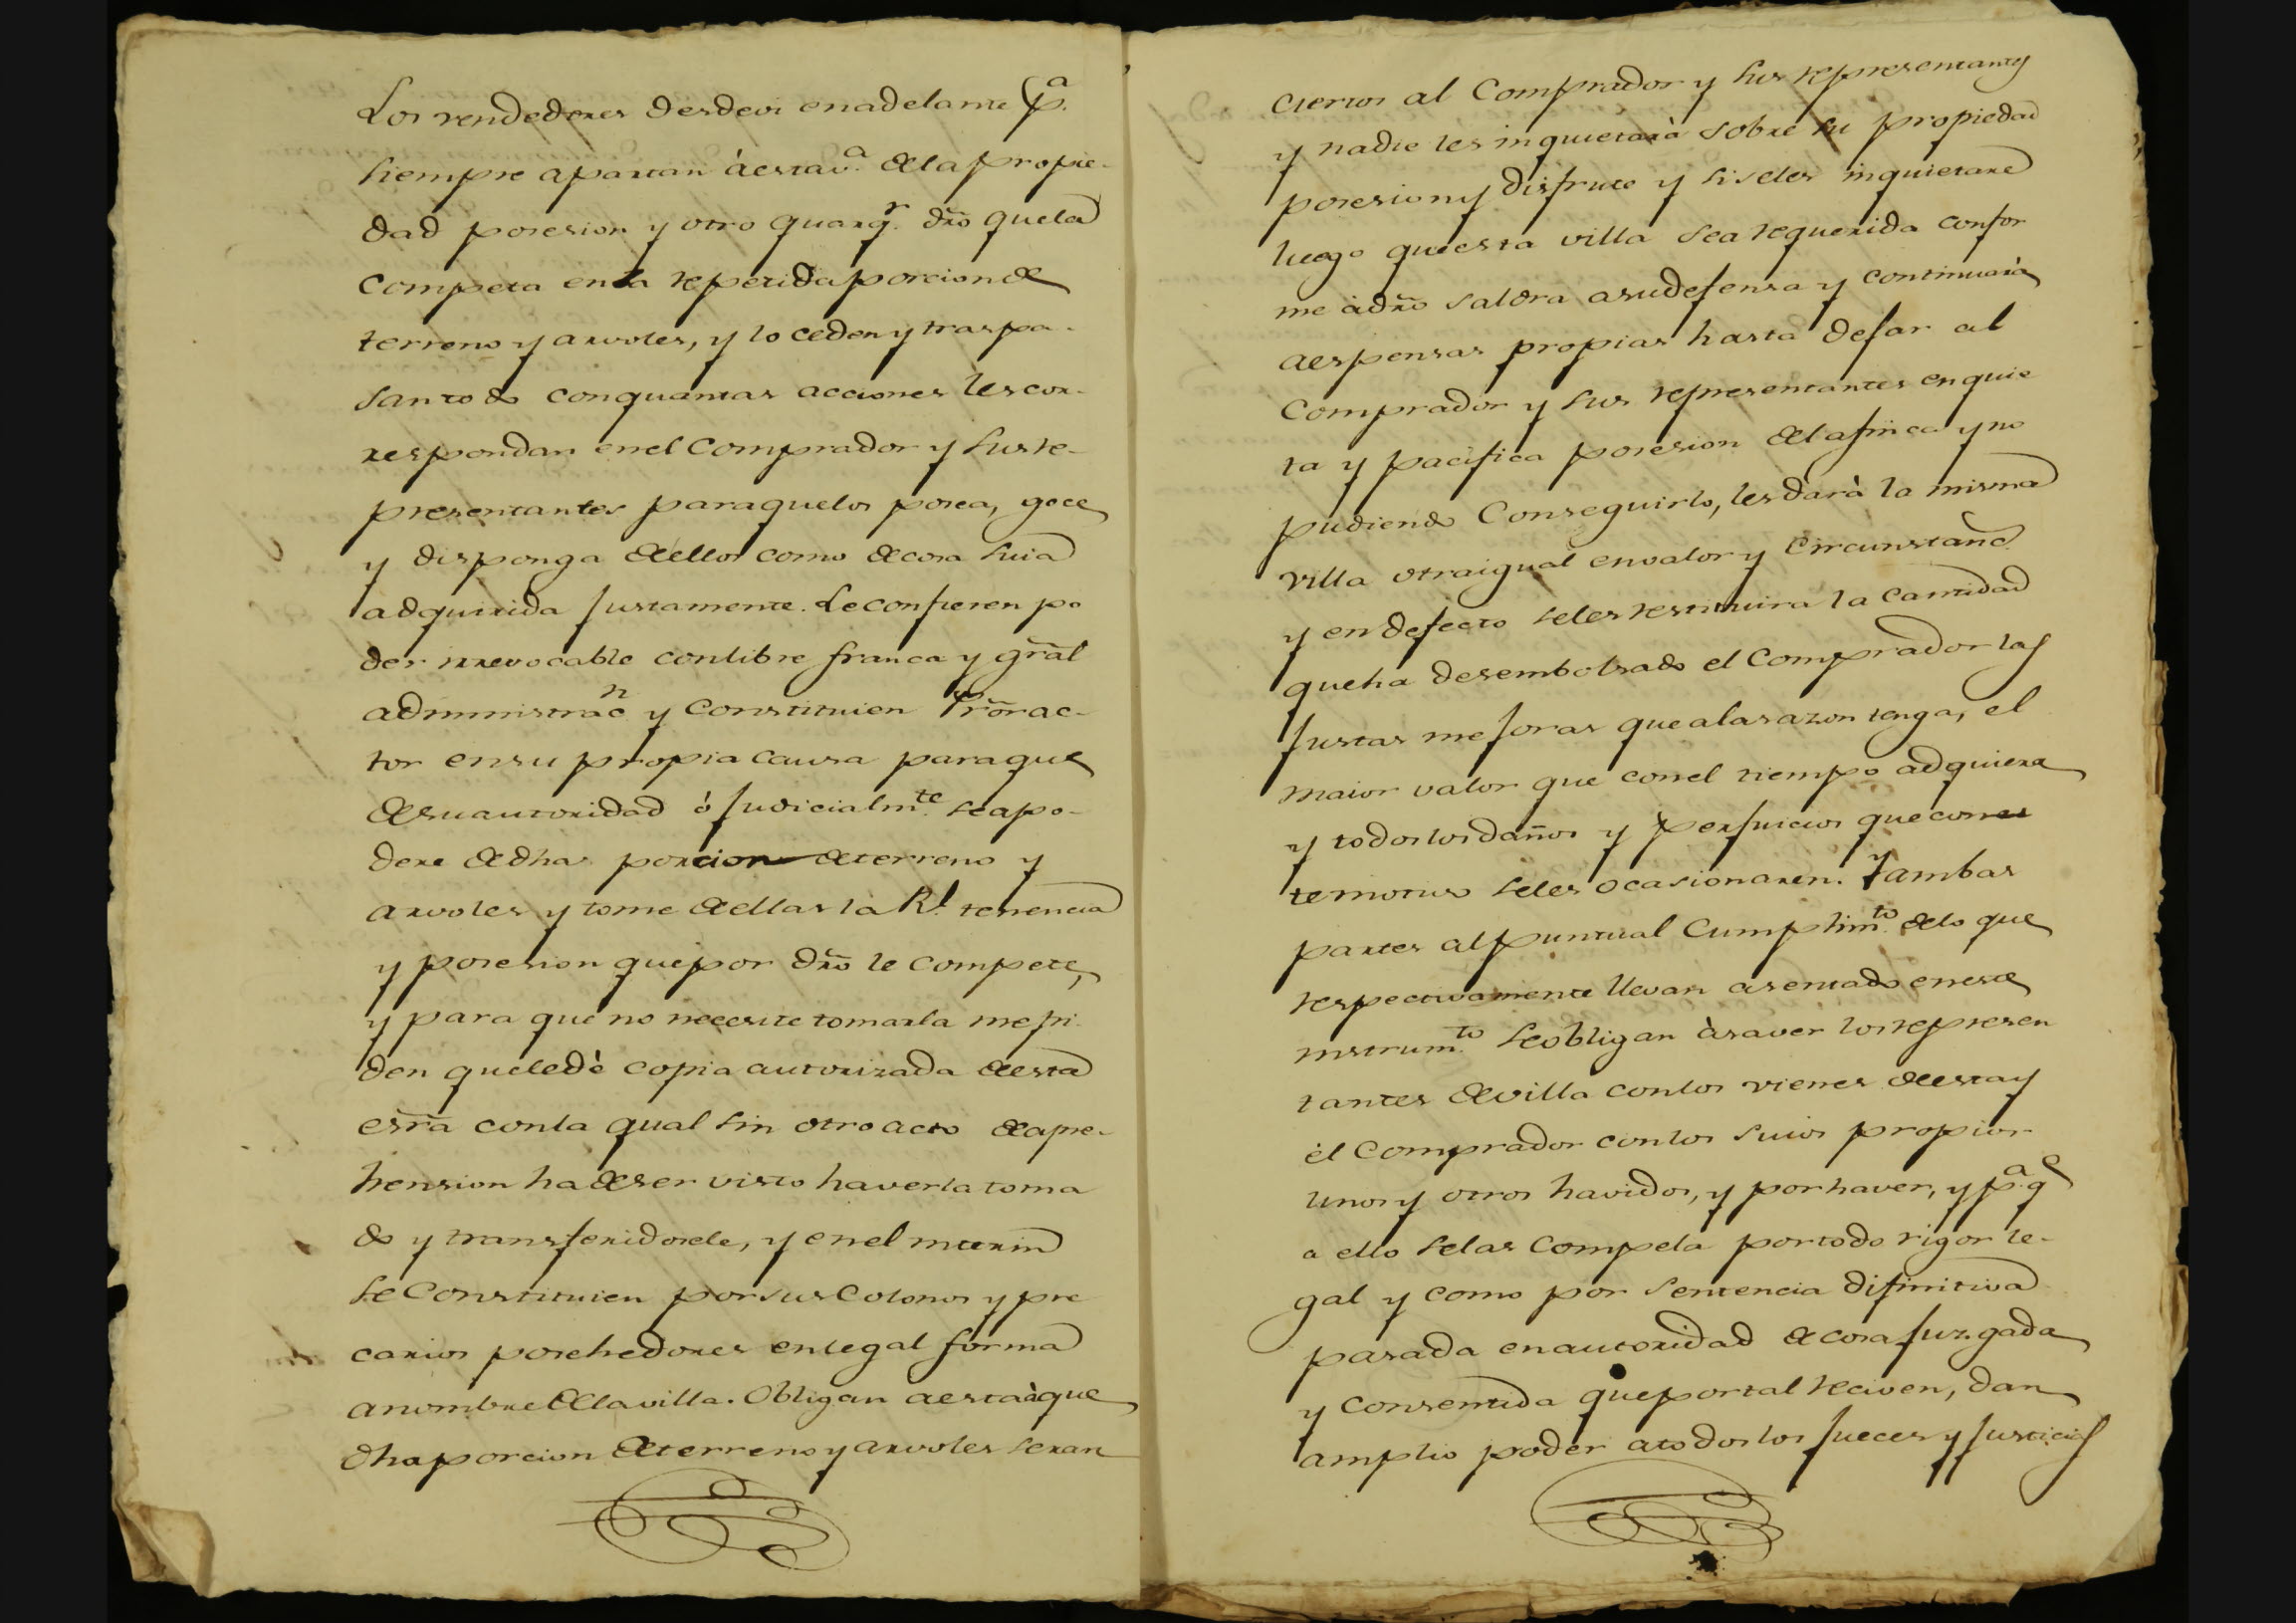 Los vendedores desde oi en adelante pª.
siempre apartan à esta vª. de la propie-
dad posesion y otro quarqr. dro que la
competa en la repetida porcion de
terreno y arvoles, y lo ceden y traspa-
san todo con quantas acciones les cor-
respondan en el Comprador y sus re-
presentantes para que los posea, goce
y disponga de ellos como de cosa suia
adquirida justamente. Le confieren po
der irrevocable con libre franca y gral
administracn y Constituien Pror ac-
tor en su propia causa para que
de su autoridad ò judicialmte. se apo-
dere de dha porcion de terreno y
arvoles y tome de ellas la Rl. tenencia
y posesion que por dro le compete,
y para que no necesite tomarla me pi-
den que le dè copia autorizada de esta
esrra con la qual sin otro acto de apre-
hension ha de ser visto haverla toma
do y transferidosele, y en el interin
se Constituien por sus Colonos y pre
carios posehedores en legal forma
a nombre de la villa. Obligan a esta à que
dha porcion de terreno y arvoles seran
ciertos al Comprador y sus representantes
y nadie les inquietarà sobre su propiedad
posesion y disfrute y si se les inquietare
luego que esta villa sea requerida confor
me à dro saldra a su defensa y continuarà
a espensas propias hasta dejar al
Comprador y sus representantes en quie
ta y pacifica posesion de la finca y no
pudiendo Conseguirlo, les darà la misma
villa otra igual en valor y Circunstanc.
y en defecto se les restituira la Cantidad
que ha desembolsado el Comprador las
justas mejoras que a la sazon tenga, el
maior valor que con el tiempo adquiera
y todos los daños y perjuicios que con es
te motivo se les ocasionaren. Y ambas
partes al puntual Cumplimto. de lo que
respectivamente llevan asentado en este
instrumto. se obligan à saver los represen
tantes de villa con los vienes de esta y
èl Comprador con los suios propios
unos y otros havidos, y por haver, y pª. q
a ello se las compela por todo rigor le-
gal y como por sentencia difinitiva
pasada en autoridad de cosa juzgada
y consentida que por tal reciven, dan
amplio poder a todos los jueces y justicias